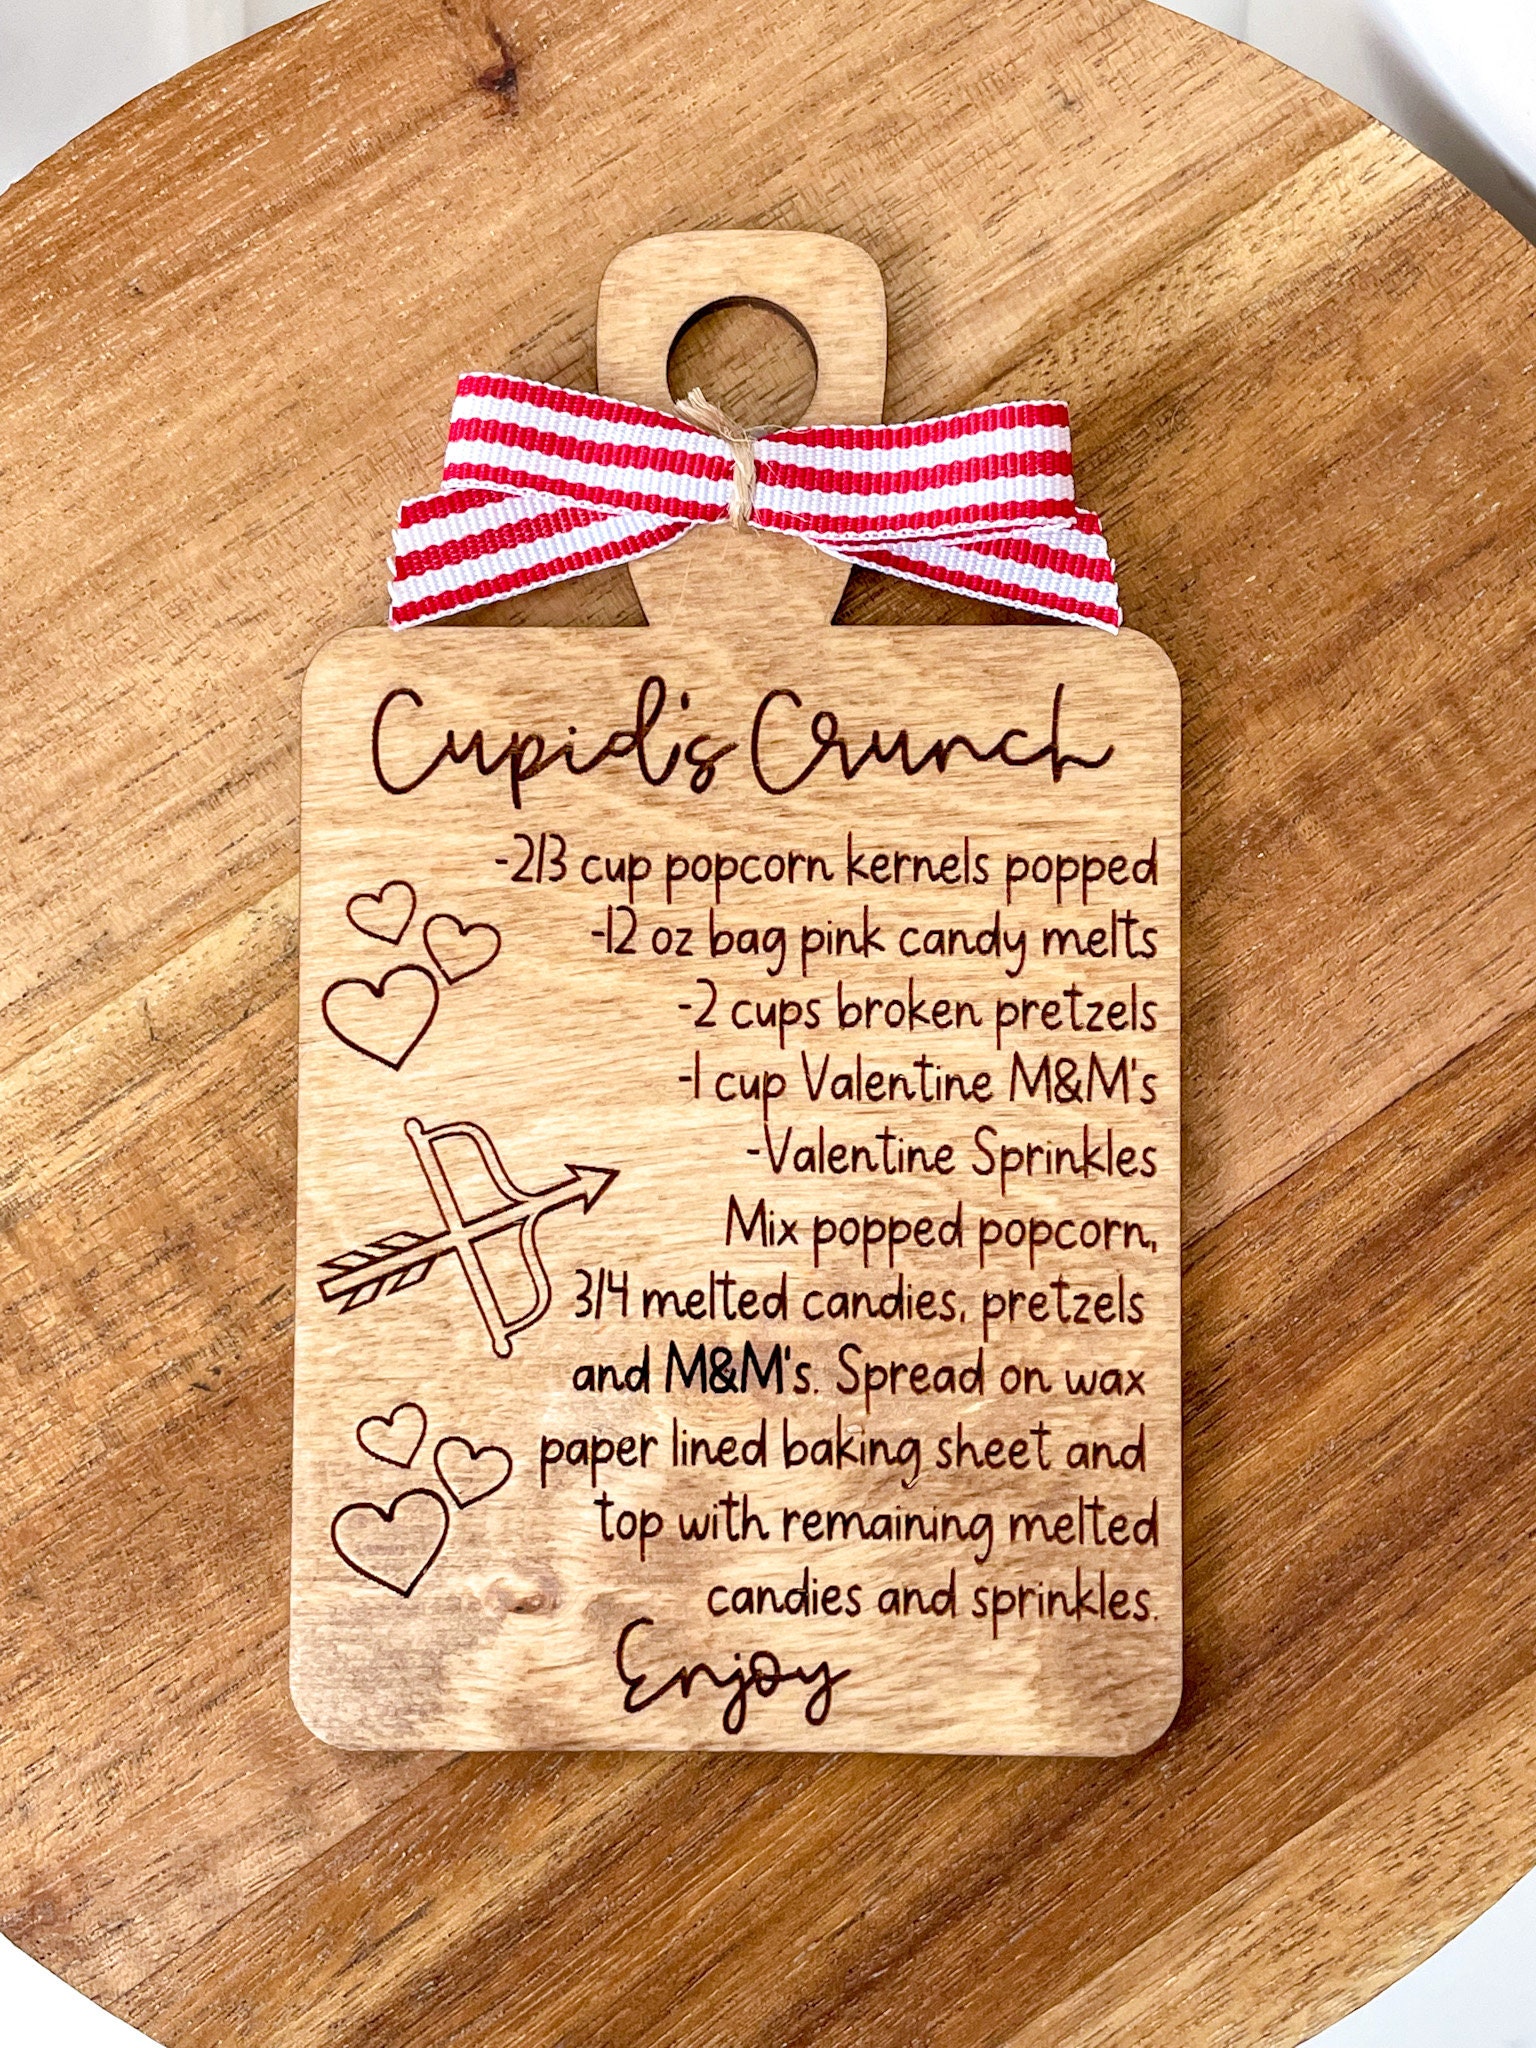 Cupid's Crunch
-2/3 cup popcorn kernels popped
-12 oz bag pink candy melts
-2 cups broken pretzels
-1 cup Valentine M&M's
-Valentine Sprinkles
Mix popped popcorn,
3/4 melted candies, pretzels
and M&M's. Spread on wax
paper lined baking sheet and
top with remaining melted
candies and sprinkles.
Enjoy